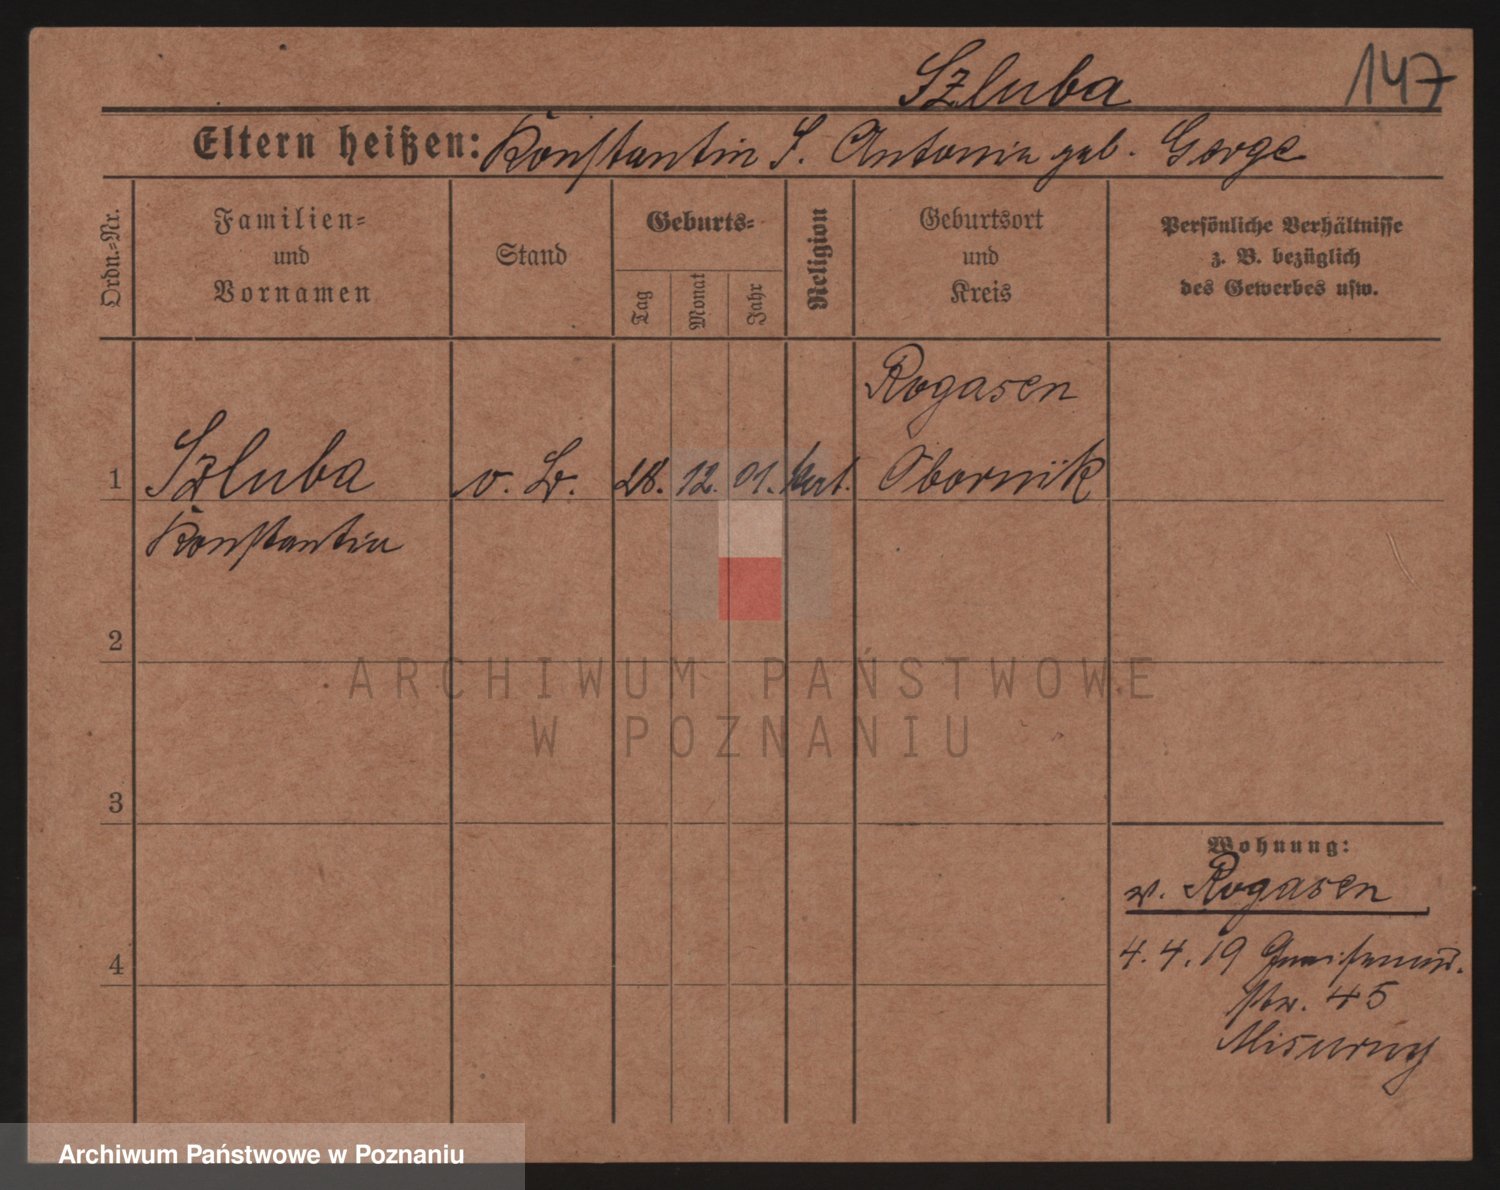 Szluba 147
Eltern heißen: Konstantin S. Antonie geb. George
Ordn.=Nr.
Familien=
und
Vornamen
Stand
Geburts=
Tag
Monat
Jahr
Religion
Geburtsort
und
Kreis
Persönliche Verhältnisse
z. B. bezüglich
des Gewerbes usw.
Rogasen
1 Szluba 28. 12. 01. Obornik
Konstantin
2
3
4
Wohnung:
v. Rogasen
4.4.19
str. 45
ARCHIWUM PAŃSTWOWE
W POZNANIU
Archiwum Państwowe w Poznaniu